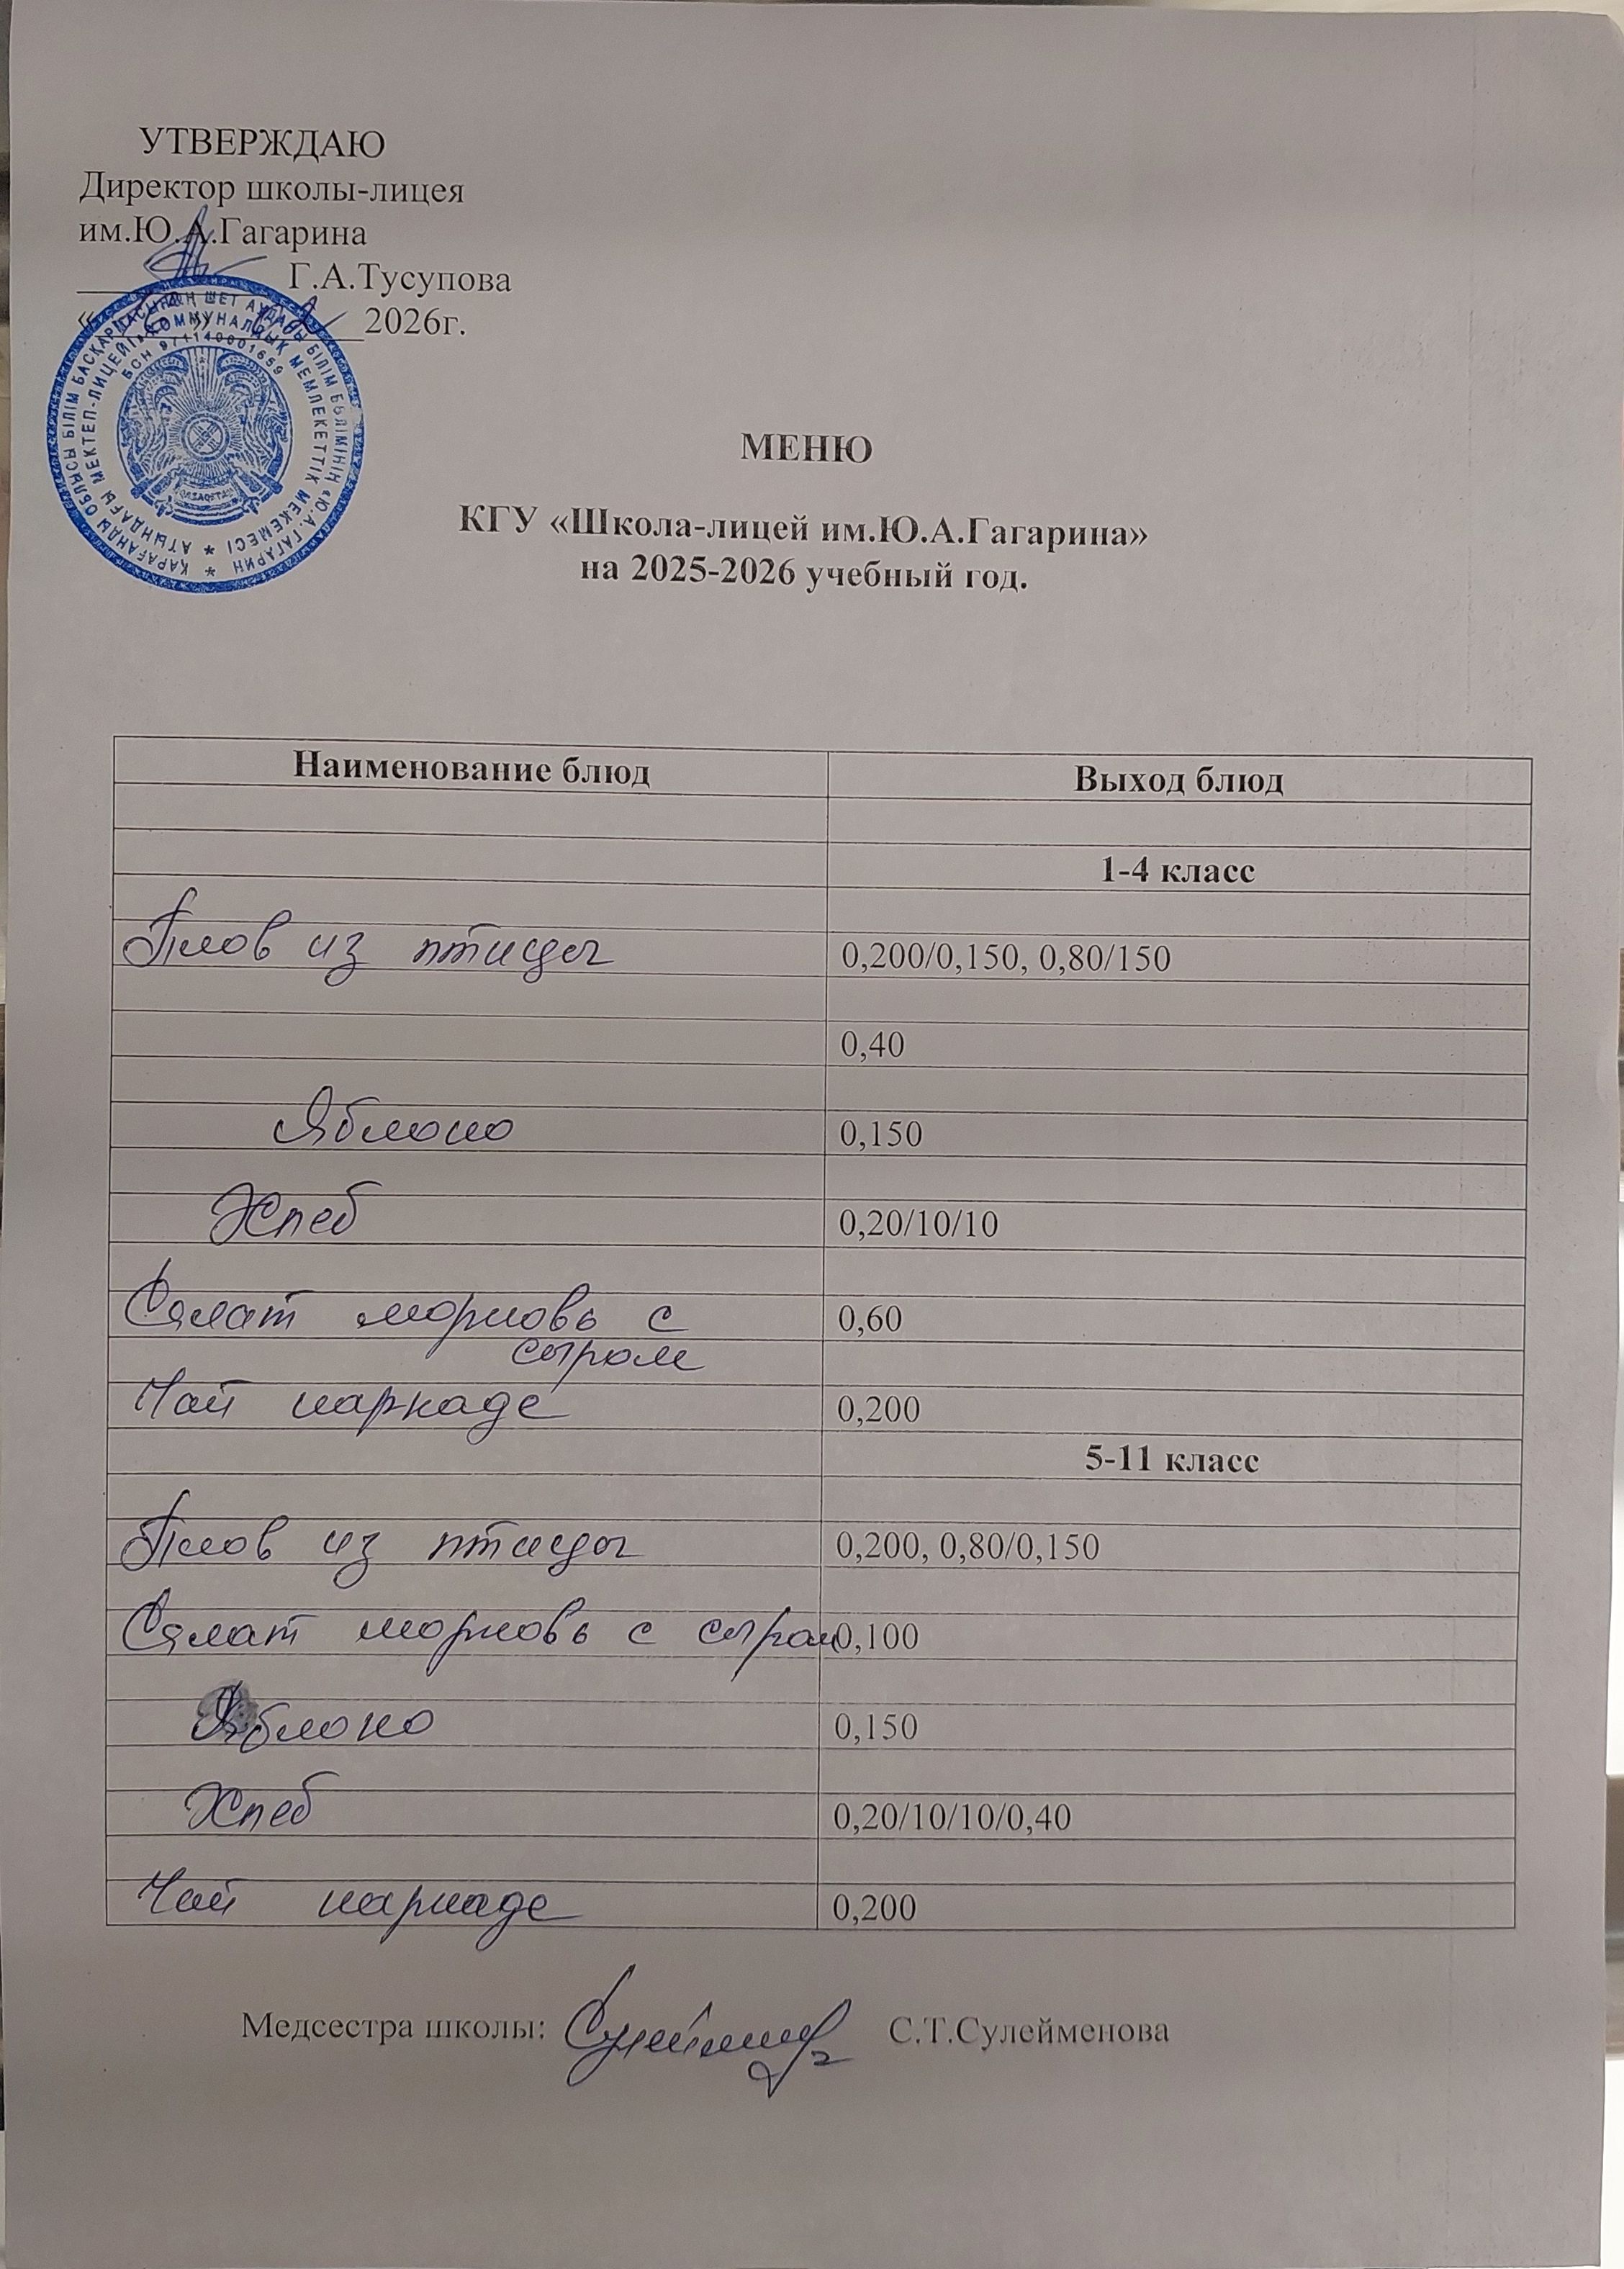 УТВЕРЖДАЮ
Директор школы-лицея
им.Ю.А.Гагарина
Г.А.Тусупова
2026г.
ҚАРАҒАНДЫ ОБЛЫСЫ БІЛІМ БАСҚАРМАСЫНЫҢ ШЕТ АУДАНЫ БІЛІМ БӨЛІМІНІҢ «Ю.А.ГАГАРИН
АТЫНДАҒЫ МЕКТЕП-ЛИЦЕЙІ» КОММУНАЛДЫҚ МЕМЛЕКЕТТІК МЕКЕМЕСІ
БСН 971140001659
QAZAQSTAN
МЕНЮ
КГУ «Школа-лицей им.Ю.А.Гагарина»
на 2025-2026 учебный год.
Наименование блюд Выход блюд
1-4 класс
Плов из птицы 0,200/0,150, 0,80/150
0,40
Яблоко 0,150
Хлеб 0,20/10/10
Салат морковь с 0,60
сыром
Чай каркаде 0,200
5-11 класс
Плов из птицы 0,200, 0,80/0,150
Салат морковь с сыром 0,100
Яблоко 0,150
Хлеб 0,20/10/10/0,40
Чай каркаде 0,200
Медсестра школы: С.Т.Сулейменова